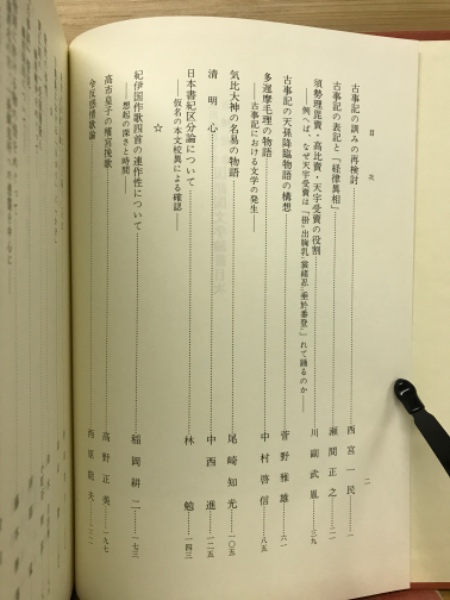 目次
二
古事記の訓みの再検討……西宮一民……一
古事記の表記と『経律異相』……瀬間正之……二一
須勢理毘賣・高比賣・天宇受賣の役割……川副武胤……三九
――例へば、なぜ天宇受賣は「掛出胸乳、裳緒忍垂於番登」れて踊るのか――
古事記の天孫降臨物語の構想……菅野雅雄……六一
多遅摩毛理の物語……中村啓信……八五
――古事記における文学の発生――
気比大神の名易の物語……尾崎知光……一〇五
清明心……中西進……一二五
日本書紀区分論について……林勉……一四三
――仮名の本文校異による確認――
☆
紀伊国作歌四首の連作性について……稲岡耕二……一七三
――想起の深さと時間――
高市皇子の殯宮挽歌……高野正美……一九七
令反惑情歌論